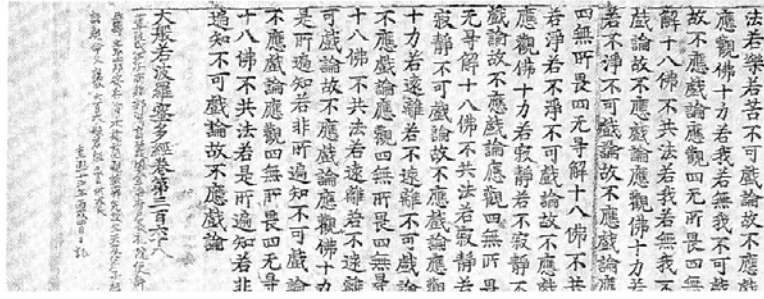 法若樂若苦不可戲論故不應戲
應觀佛十力若我若無我不可戲
故不應戲論應觀四无所畏四無
解十八佛不共法若我若無我不
戲論故不應戲論應觀佛十力若
若不淨不可戲論故不應戲論應
四無所畏四无㝵解十八佛不共
若淨若不淨不可戲論故不應戲
應觀佛十力若寂靜若不寂靜不
戲論故不應戲論應觀四無所畏
无㝵解十八佛不共法若寂靜若
寂靜不可戲論故不應戲論應觀
十力若遠離若不遠離不可戲論
不應戲論應觀四無所畏四無㝵
十八佛不共法若遠離若不遠離
可戲論故不應戲論應觀佛十力
是所遍知若非所遍知不可戲論
不應戲論應觀四無所畏四无㝵
十八佛不共法若是所遍知若非
遍知不可戲論故不應戲論
大般若波羅蜜多經卷第三百六十八